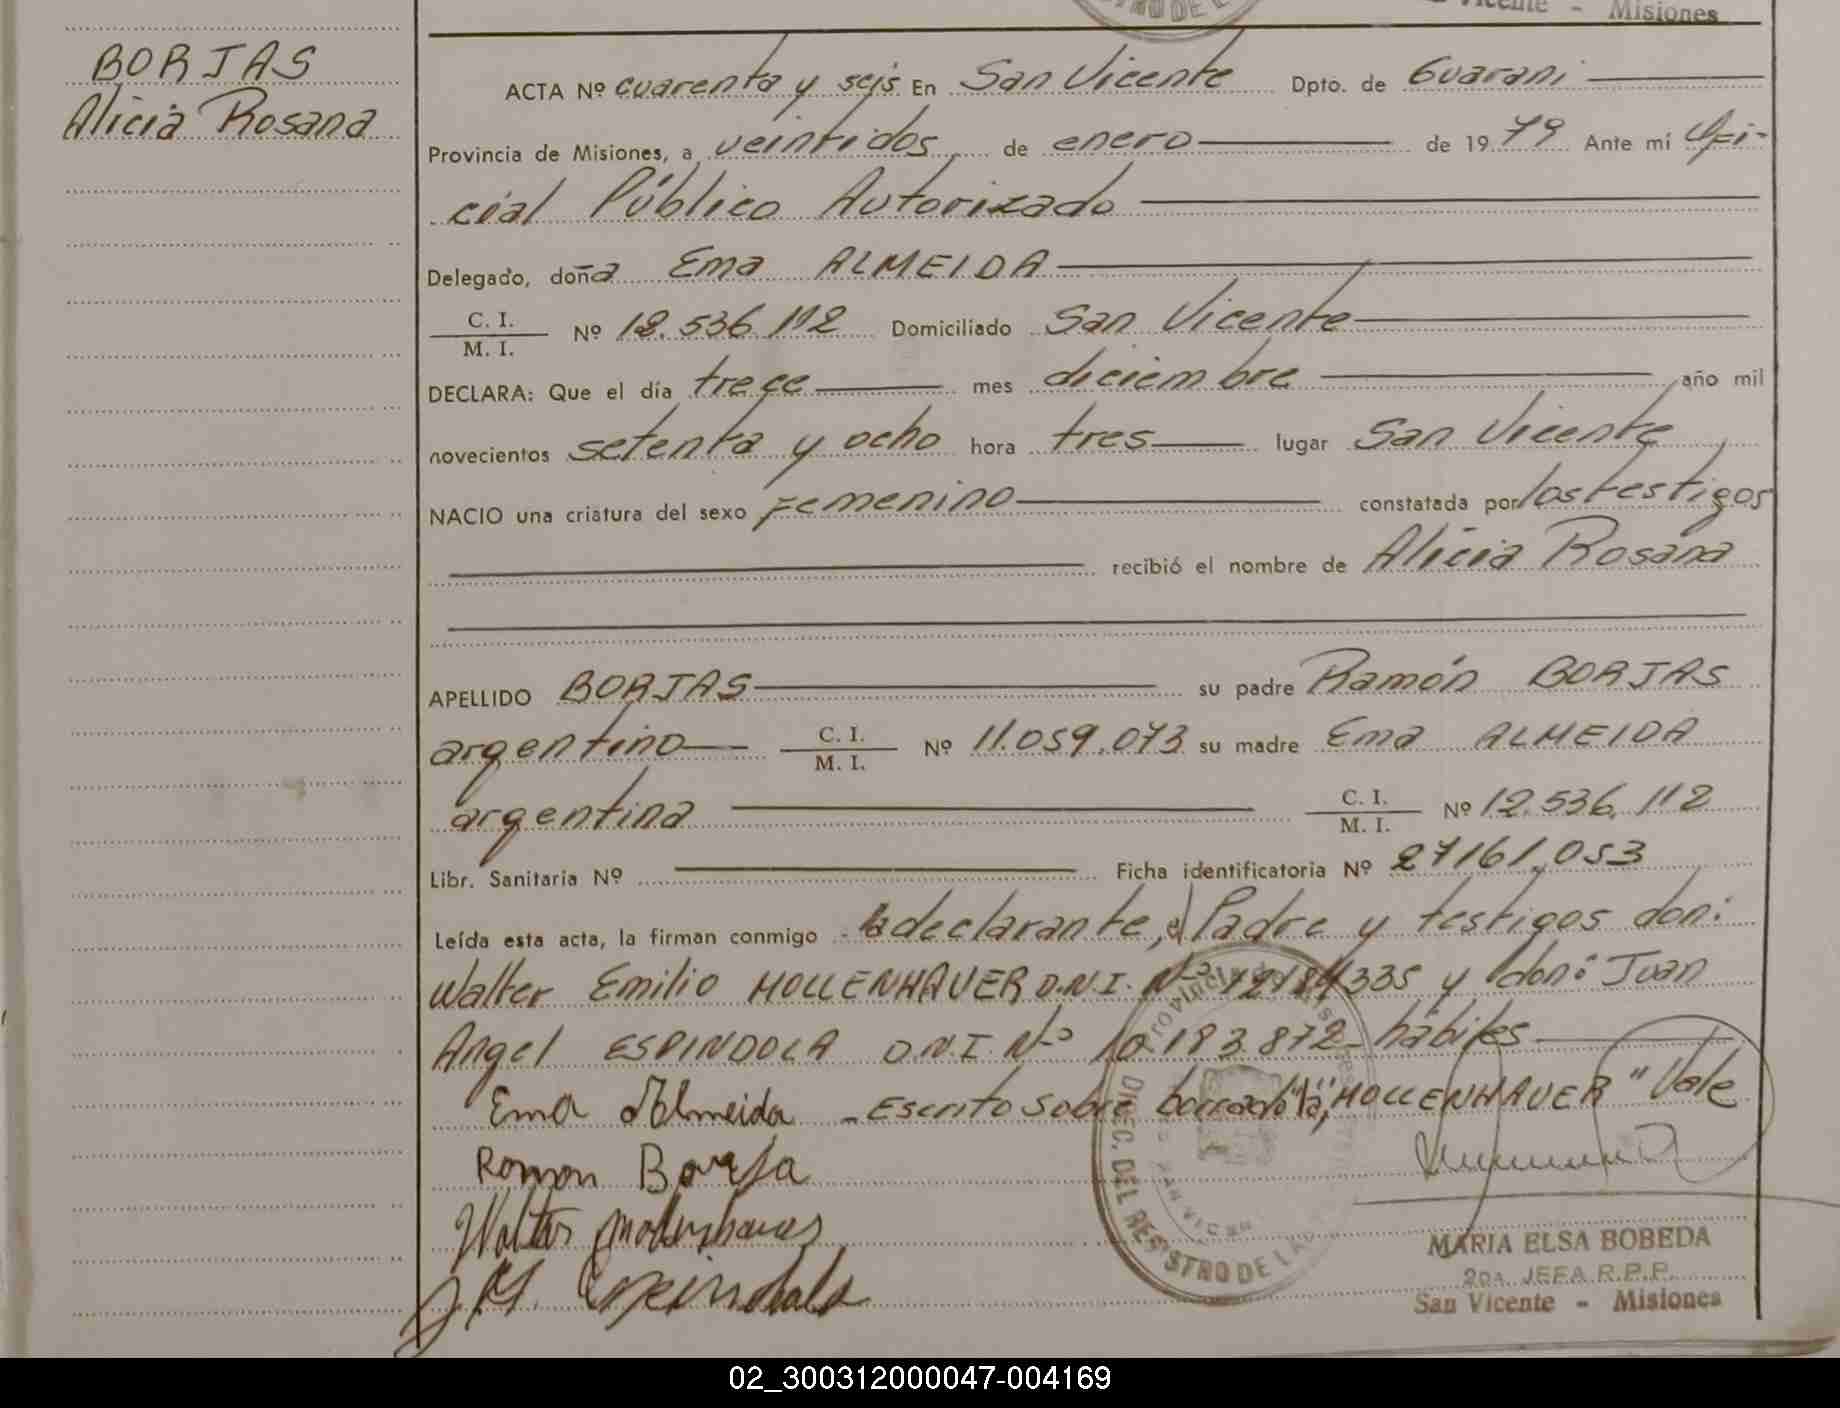 Vicente - Misiones
BORJAS
Alicia Rosana
ACTA Nº cuarenta y seis En San Vicente Dpto. de Guarani
Provincia de Misiones, a veintidos de enero de 1979 Ante mí Ofi-
cial Público Autorizado
Delegado, doña Ema ALMEIDA
C. I.
M. I. Nº 12.536.112 Domiciliado San Vicente
DECLARA: Que el día trece mes diciembre año mil
novecientos setenta y ocho hora tres lugar San Vicente
NACIO una criatura del sexo Femenino constatada por los testigos
recibió el nombre de Alicia Rosana
APELLIDO BORJAS su padre Ramón BORJAS
argentino C. I.
M. I. Nº 11.059.073 su madre Ema ALMEIDA
argentina C. I.
M. I. Nº 12.536.112
Libr. Sanitaria Nº Ficha identificatoria Nº 27161.053
Leída esta acta, la firman conmigo la declarante, el Padre y testigos don:
Walter Emilio HOLLENHAUER D.N.I. Nº 335 y don: Juan
Angel ESPINDOLA D.N.I. Nº 10.183.872 hábiles
Ema Almeida - Escrito sobre borrado "la", "HOLLENHAUER" Vale
Ramon Borja
Walter
MARIA ELSA BOBEDA
2da. JEFA R.P.P.
San Vicente - Misiones
DIREC. DEL REGISTRO DE LAS
02_300312000047-004169